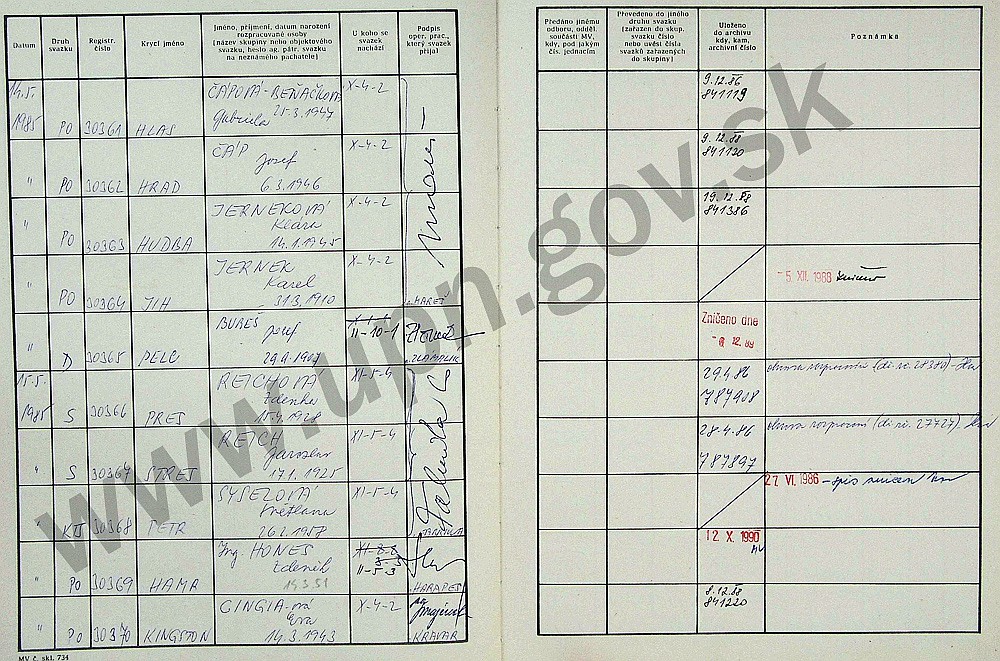 Datum
Druh svazku
Registr. číslo
Krycí jméno
Jméno, příjmení, datum narození
rozpracované osoby
(název skupiny nebo objektového
svazku, heslo ag. pátr. svazku
na neznámého pachatele)
U koho se svazek nachází
Podpis
oper. prac.,
který svazek
přijal
Předáno jinému
odboru, odděl.
součásti MV,
kdy, pod jakým
čís. jednacím
Převedeno do jiného
druhu svazku
(zařazen do skup.
svazku číslo
nebo uvést čísla
svazků zařazených
do skupiny)
Uloženo
do archivu
kdy, kam,
archivní číslo
Poznámka
14.5. 1985 PO 30361 HLAS ČÁPOVÁ-BEŇAČKOVÁ Gabriela 25.3.1947 X-4-2 9.12.86 841119
" PO 30362 HRAD ČÁP Josef 6.3.1946 X-4-2 9.12.88 841130
" PO 30363 HUDBA JERNEKOVÁ Klára 14.1.1945 X-4-2 19.12.88 841386
" PO 30364 JIH JERNEK Karel 31.3.1910 X-4-2 MAREŠ -5. XII. 1988
" D 30365 PELC BUREŠ Josef 29.9.1907 II-10-1 Zničeno dne 12. 89
15.5. 1985 S 30366 PRES REICHOVÁ Zdenka 15.4.1928 XI-5-4 29.4.86 787908
" S 30367 STRES REICH Jaroslav 17.1.1925 XI-5-4 28.4.86 787897
" KTS 30368 PETR Světlana 26.2.1958 XI-5-4 27. VI. 1986 - spis
" PO 30369 HAMR Ing. HONES Zdeněk 14.3.51 II-5-3 HARAPES 12. X. 1990
" PO 30370 KINGSTON CINGIA-ová Eva 14.3.1943 X-4-2 KRAVAR 8.12.88 841220
MV č. skl. 734
www.upn.gov.sk